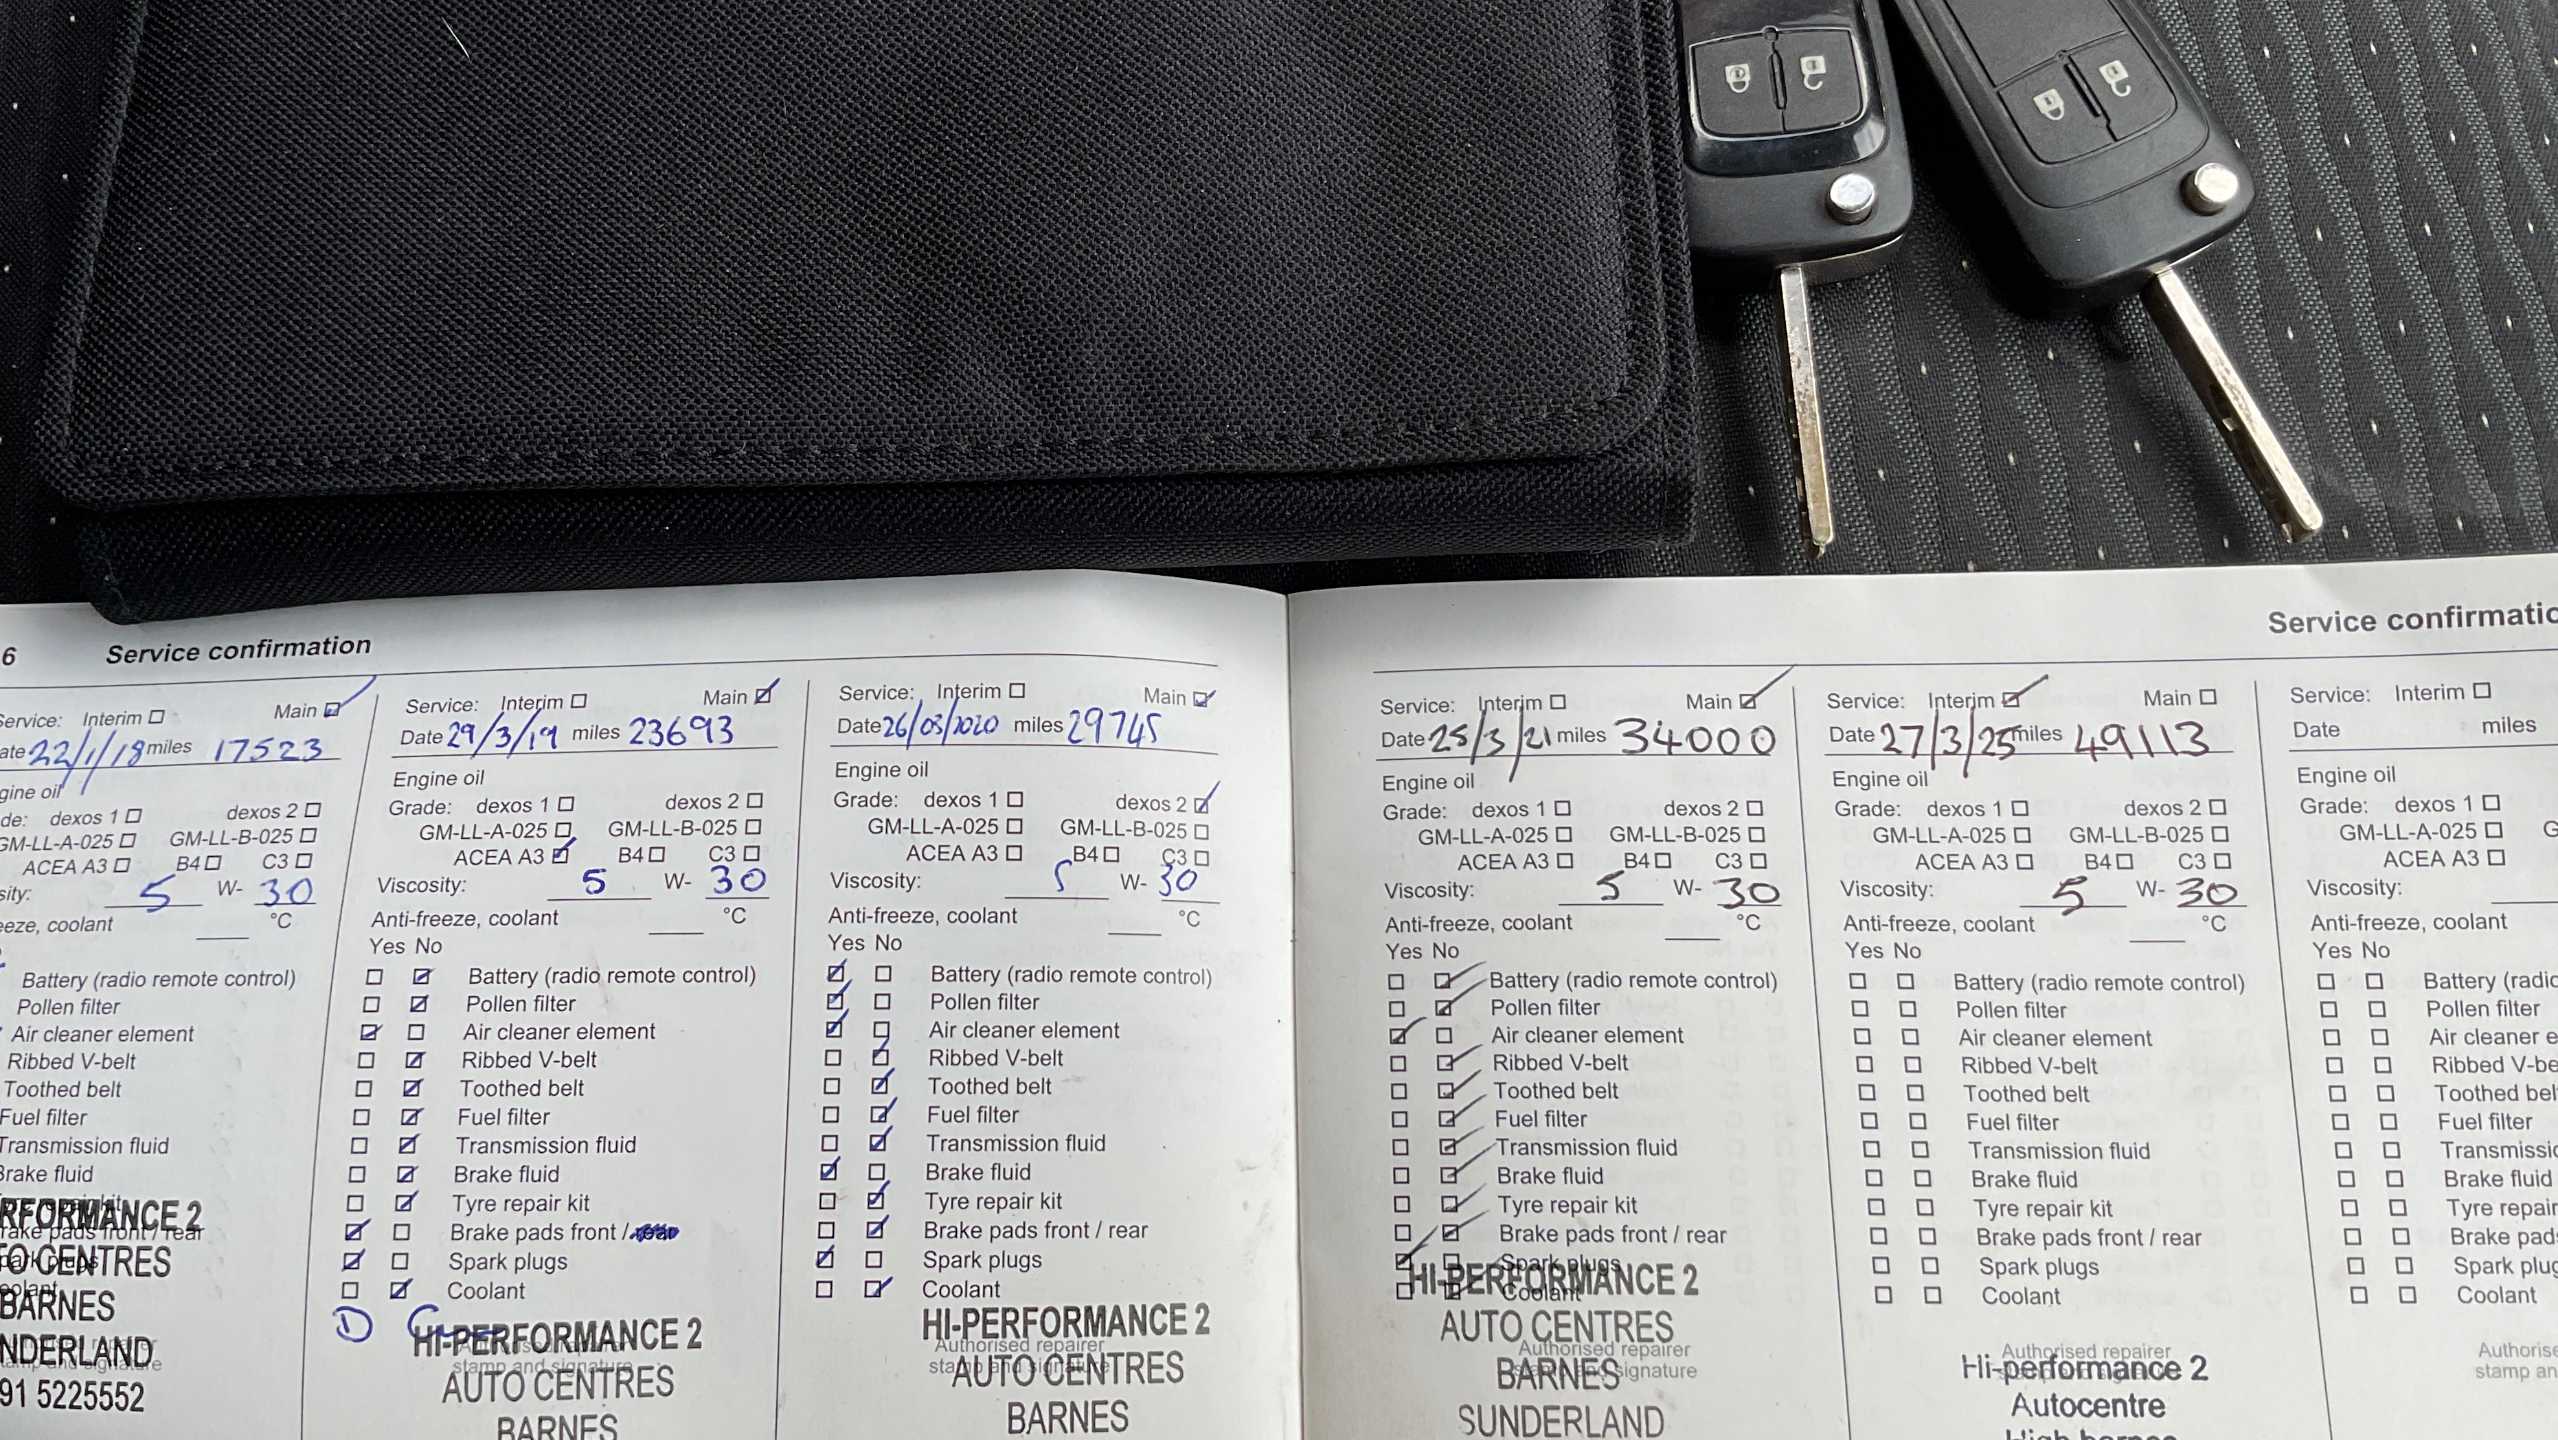 6 Service confirmation
Service: Interim Main
Date 22/1/18 miles 17523
Engine oil
Grade: dexos 1 dexos 2
GM-LL-A-025 GM-LL-B-025
ACEA A3 B4 C3
5 W- 30
coolant °C
Battery (radio remote control)
Pollen filter
Air cleaner element
Ribbed V-belt
Toothed belt
Fuel filter
Transmission fluid
Brake fluid
RFORMANCE 2
Brake pads front / rear
TO CENTRES
BARNES
NDERLAND
91 5225552
Service: Interim Main
Date 29/3/19 miles 23693
Engine oil
Grade: dexos 1 dexos 2
GM-LL-A-025 GM-LL-B-025
ACEA A3 B4 C3
Viscosity: 5 W- 30
Anti-freeze, coolant °C
Yes No
Battery (radio remote control)
Pollen filter
Air cleaner element
Ribbed V-belt
Toothed belt
Fuel filter
Transmission fluid
Brake fluid
Tyre repair kit
Brake pads front /
Spark plugs
Coolant
HI-PERFORMANCE 2
Authorised repairer
stamp and signature
AUTO CENTRES
BARNES
Service: Interim Main
Date 26/03/2020 miles 29745
Engine oil
Grade: dexos 1 dexos 2
GM-LL-A-025 GM-LL-B-025
ACEA A3 B4 C3
Viscosity: 5 W- 30
Anti-freeze, coolant °C
Yes No
Battery (radio remote control)
Pollen filter
Air cleaner element
Ribbed V-belt
Toothed belt
Fuel filter
Transmission fluid
Brake fluid
Tyre repair kit
Brake pads front / rear
Spark plugs
Coolant
HI-PERFORMANCE 2
Authorised repairer
stamp and signature
AUTO CENTRES
BARNES
Service confirmatio
Service: Interim Main
Date 25/3/21 miles 34000
Engine oil
Grade: dexos 1 dexos 2
GM-LL-A-025 GM-LL-B-025
ACEA A3 B4 C3
Viscosity: 5 W- 30
Anti-freeze, coolant °C
Yes No
Battery (radio remote control)
Pollen filter
Air cleaner element
Ribbed V-belt
Toothed belt
Fuel filter
Transmission fluid
Brake fluid
Tyre repair kit
Brake pads front / rear
Spark plugs
HI-PERFORMANCE 2
Coolant
AUTO CENTRES
Authorised repairer
stamp and signature
BARNES
SUNDERLAND
Service: Interim Main
Date 27/3/25 miles 49113
Engine oil
Grade: dexos 1 dexos 2
GM-LL-A-025 GM-LL-B-025
ACEA A3 B4 C3
Viscosity: 5 W- 30
Anti-freeze, coolant °C
Yes No
Battery (radio remote control)
Pollen filter
Air cleaner element
Ribbed V-belt
Toothed belt
Fuel filter
Transmission fluid
Brake fluid
Tyre repair kit
Brake pads front / rear
Spark plugs
Coolant
Authorised repairer
Hi-performance 2
Autocentre
High barnes
Service: Interim
Date miles
Engine oil
Grade: dexos 1
GM-LL-A-025 G
ACEA A3
Viscosity:
Anti-freeze, coolant
Yes No
Battery (radio
Pollen filter
Air cleaner e
Ribbed V-be
Toothed bel
Fuel filter
Transmissio
Brake fluid
Tyre repair
Brake pad
Spark plug
Coolant
Authorise
stamp an